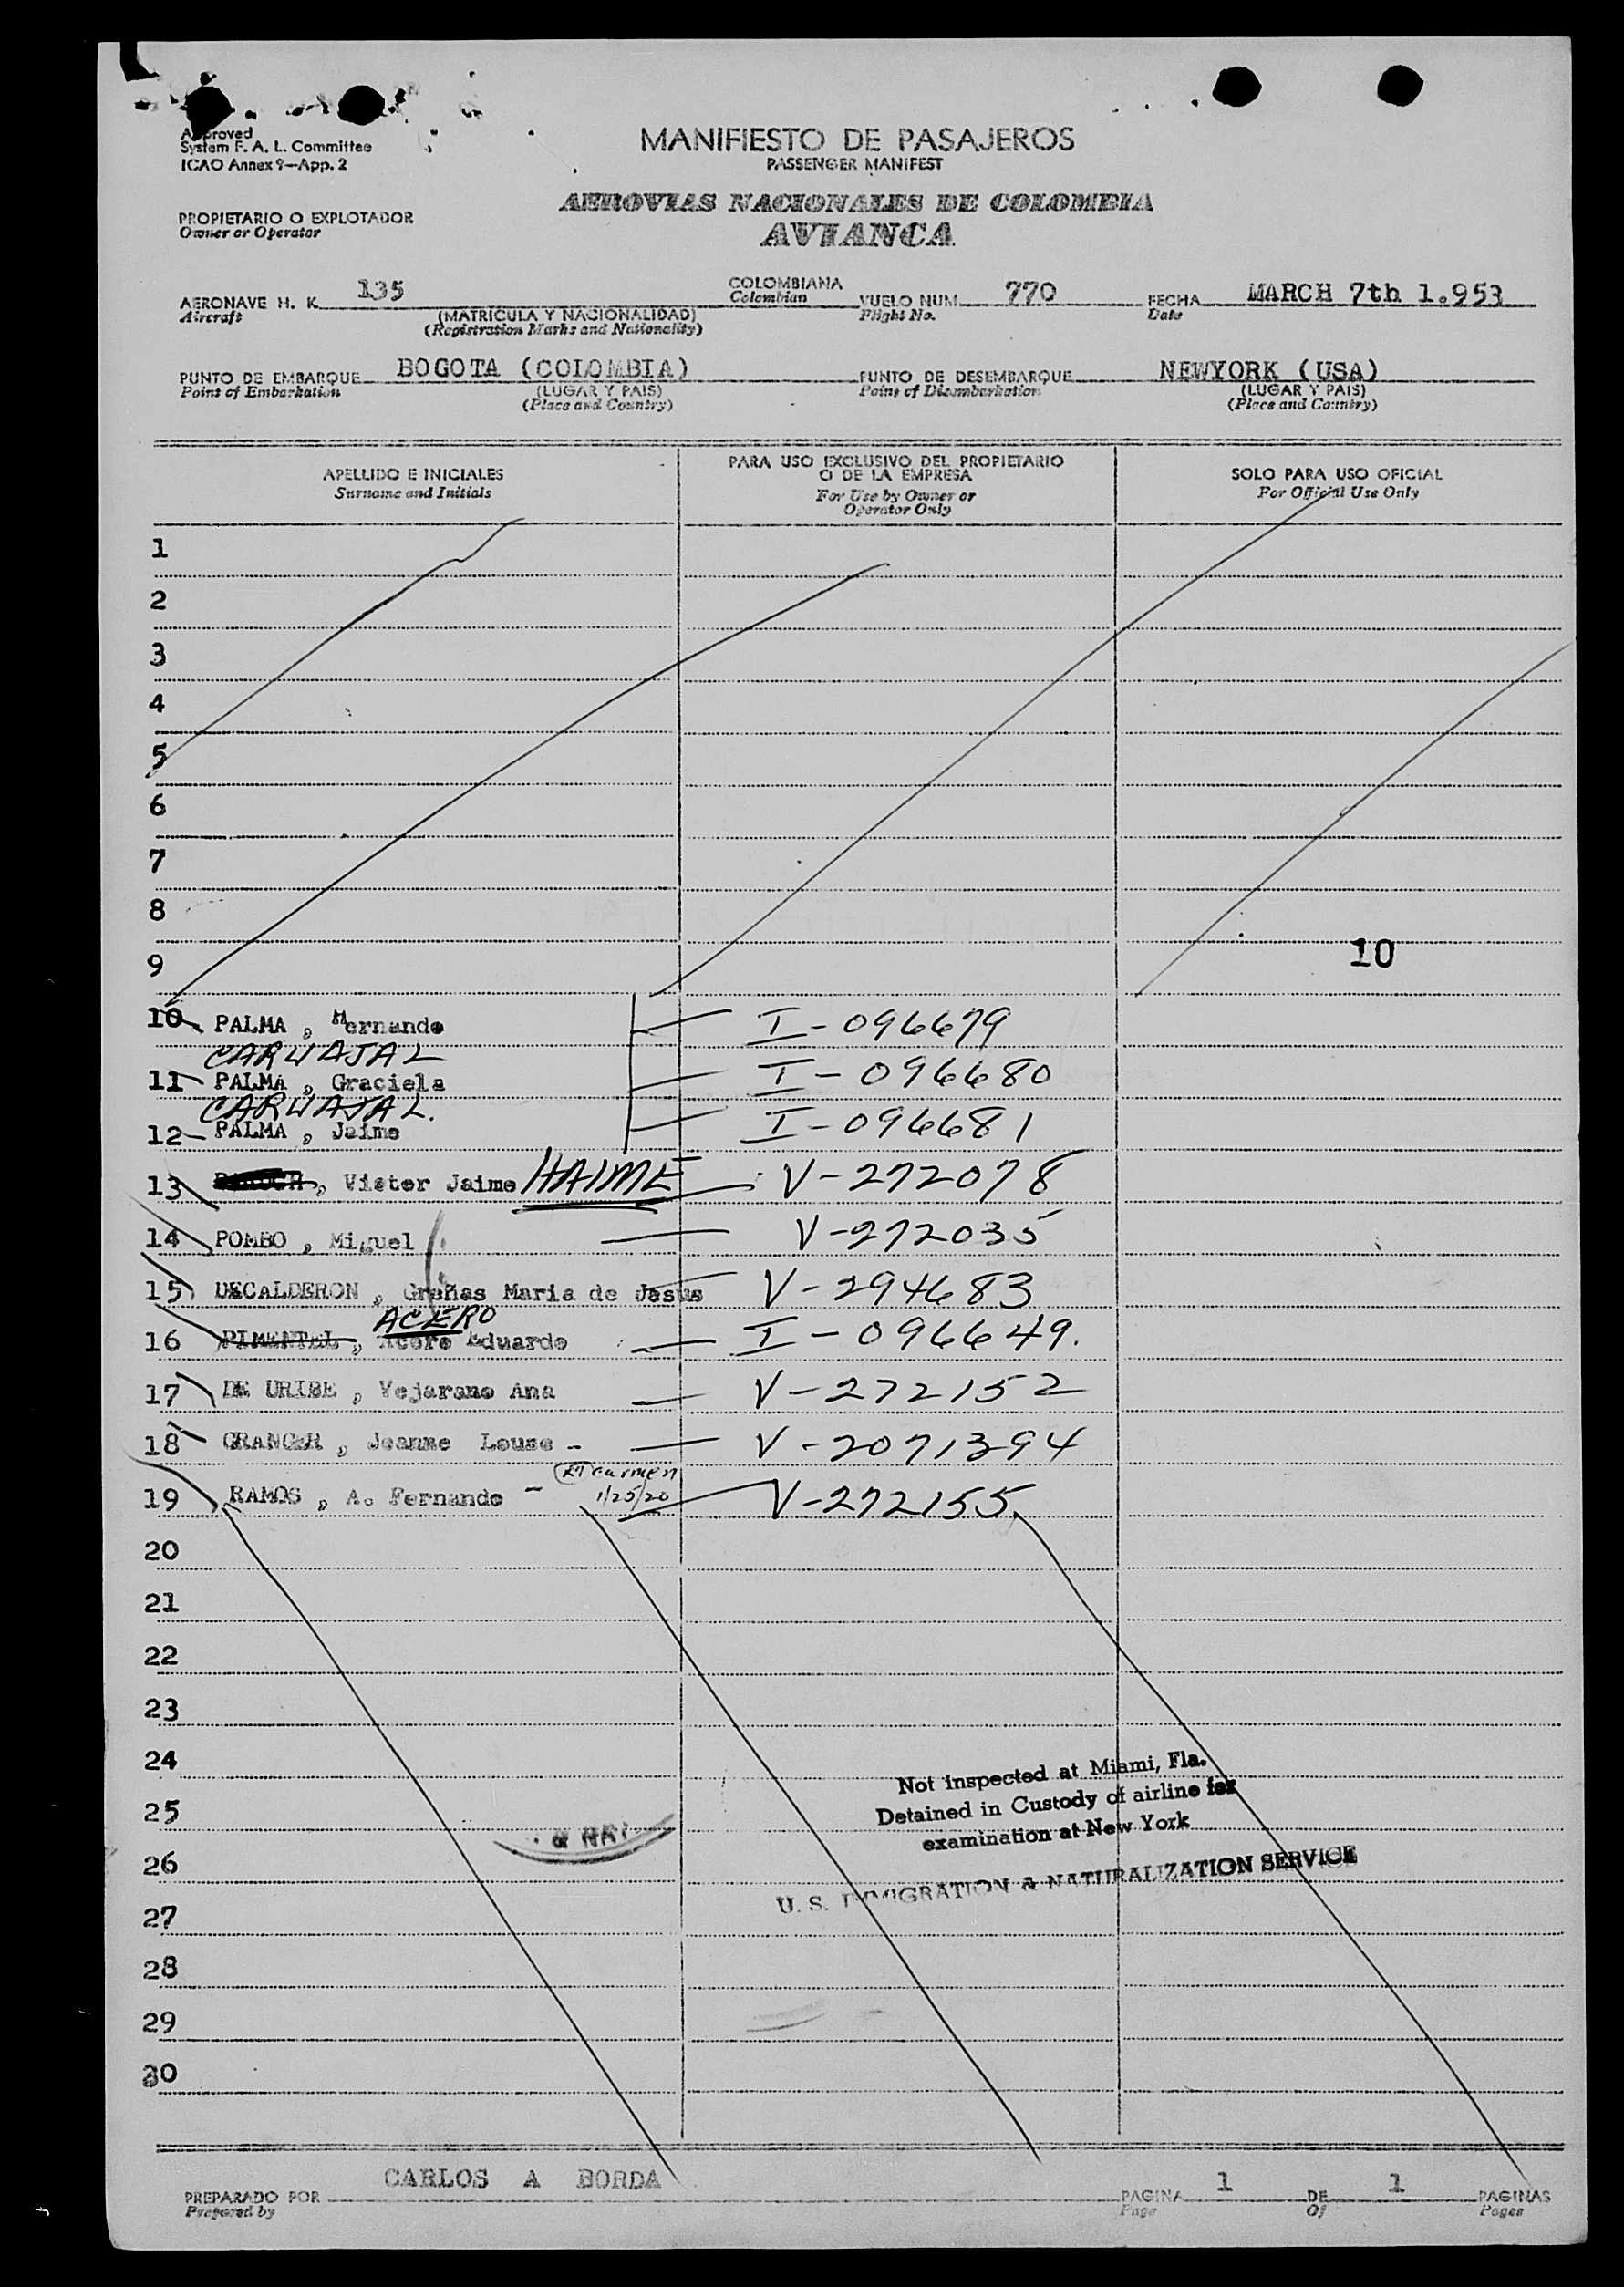 Approved
System F. A. L. Committee
ICAO Annex 9—App. 2
MANIFIESTO DE PASAJEROS
PASSENGER MANIFEST
PROPIETARIO O EXPLOTADOR
Owner or Operator
AEROVIAS NACIONALES DE COLOMBIA
AVIANCA
AERONAVE H. K. 135 COLOMBIANA VUELO NUM. 770 FECHA MARCH 7th 1.953
Aircraft (MATRICULA Y NACIONALIDAD) Colombian Flight No. Date
(Registration Marks and Nationality)
PUNTO DE EMBARQUE BOGOTA (COLOMBIA) PUNTO DE DESEMBARQUE NEWYORK (USA)
Point of Embarkation (LUGAR Y PAIS) Point of Disembarkation (LUGAR Y PAIS)
(Place and Country) (Place and Country)
APELLIDO E INICIALES PARA USO EXCLUSIVO DEL PROPIETARIO SOLO PARA USO OFICIAL
O DE LA EMPRESA
Surname and Initials For Use by Owner or For Official Use Only
Operator Only
1
2
3
4
5
6
7
8
9 10
10 PALMA , Hernando I-096679
CARVAJAL
11 PALMA , Graciela I-096680
CARVAJAL.
12 PALMA , Jaime I-096681
13 , Victor Jaime HAIME V-272078
14 POMBO , Miguel V-272035
15 DECALDERON , Greñas Maria de Jesus V-294683
ACERO
16 PIMENTEL , Acero Eduardo I-096649.
17 DE URIBE , Vejarano Ana V-272152
18 GRANGER , Jeanne Louse - V-2071394
Carmen
19 RAMOS , A. Fernando - 1/25/20 V-272155
20
21
22
23
24
25
26
27
28
29
30
Not inspected at Miami, Fla.
Detained in Custody of airline for
examination at New York
U. S. IMMIGRATION & NATURALIZATION SERVICE
PREPARADO POR CARLOS A BORDA PAGINA 1 DE 1 PAGINAS
Prepared by Page Of Pages